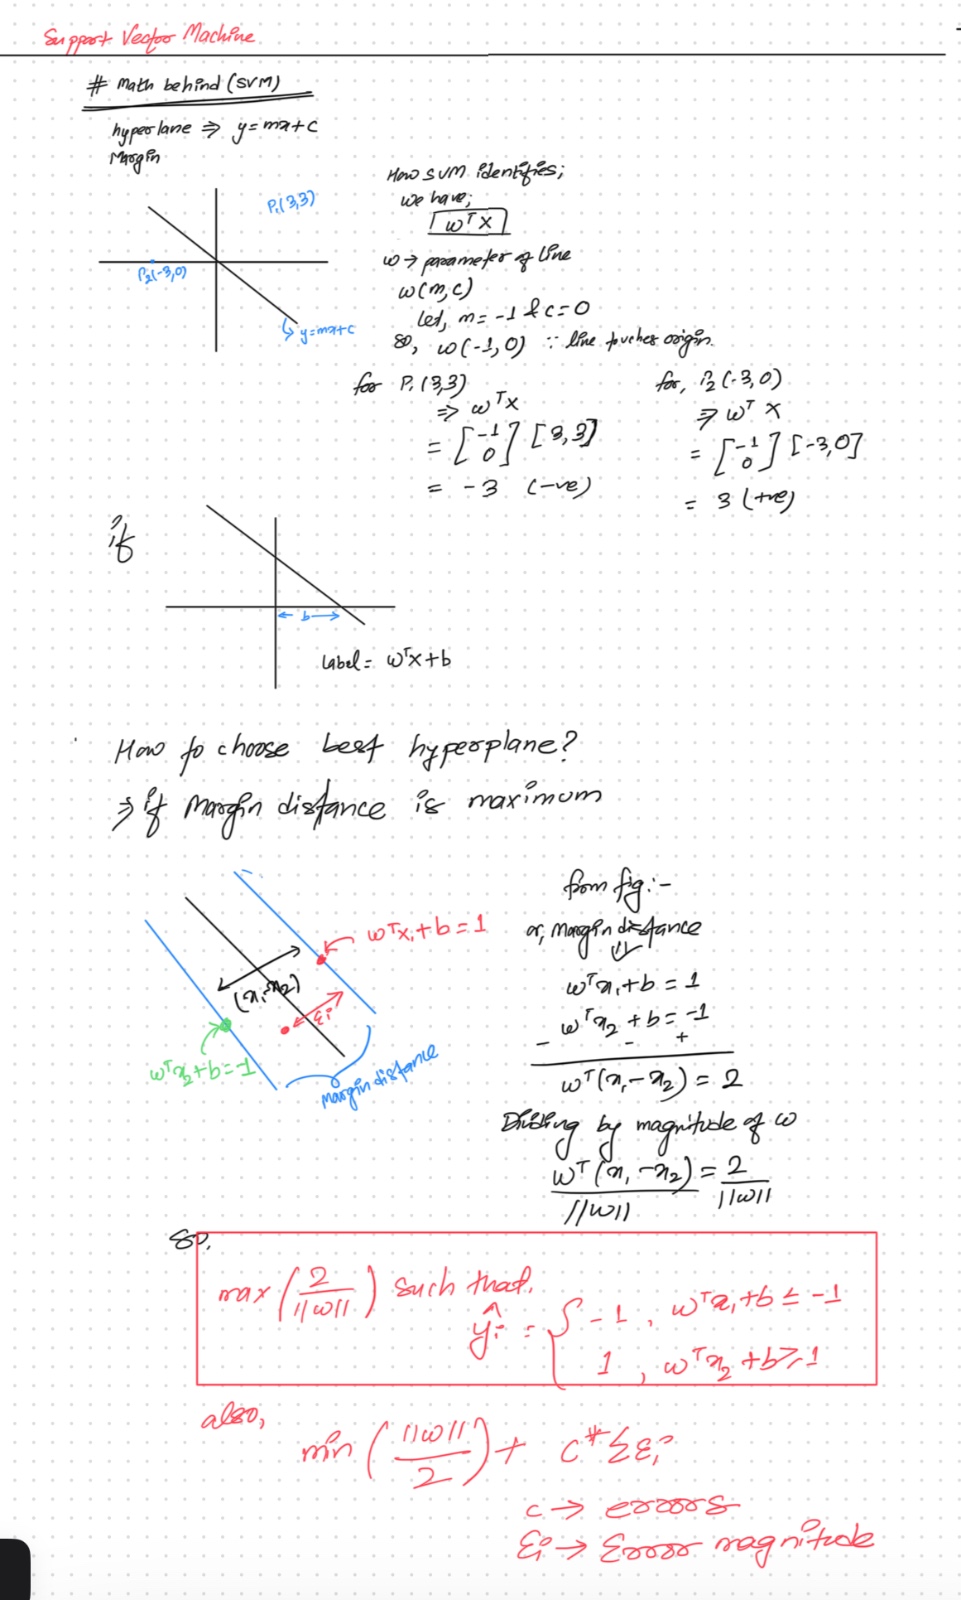 Support Vector Machine
# Math behind (SVM)
hyperlane ⇒ y=mx+c
Margin
P₁(3,3)
P₂(-3,0)
y=mx+c
How SVM identifies;
we have;
wᵀX
w → parameter of line
w(m,c)
let, m = -1 & c = 0
so, w(-1,0) ∵ line touches origin.
for P₁(3,3)
⇒ wᵀX
= [-1 0] [3,3]
= -3 (-ve)
for, P₂(-3,0)
⇒ wᵀ X
= [-1 0] [-3,0]
= 3 (+ve)
if
b
Label = wᵀX+b
How to choose best hyperplane?
⇒ if Margin distance is maximum
wᵀx₁+b=1
(x₁-x₂)
εi
wᵀx₂+b=-1
Margin distance
from fig:-
or, Margin distance
wᵀx₁+b = 1
wᵀx₂+b = -1
- - +
wᵀ(x₁-x₂) = 2
Dividing by magnitude of w
wᵀ(x₁-x₂)/||w|| = 2/||w||
so,
max (2/||w||) such that,
ŷi = { -1, wᵀx₁+b ≤ -1
1, wᵀx₂+b ≥ 1
also,
min (||w||/2) + c*Σεi
c → errors
εi → Error magnitude